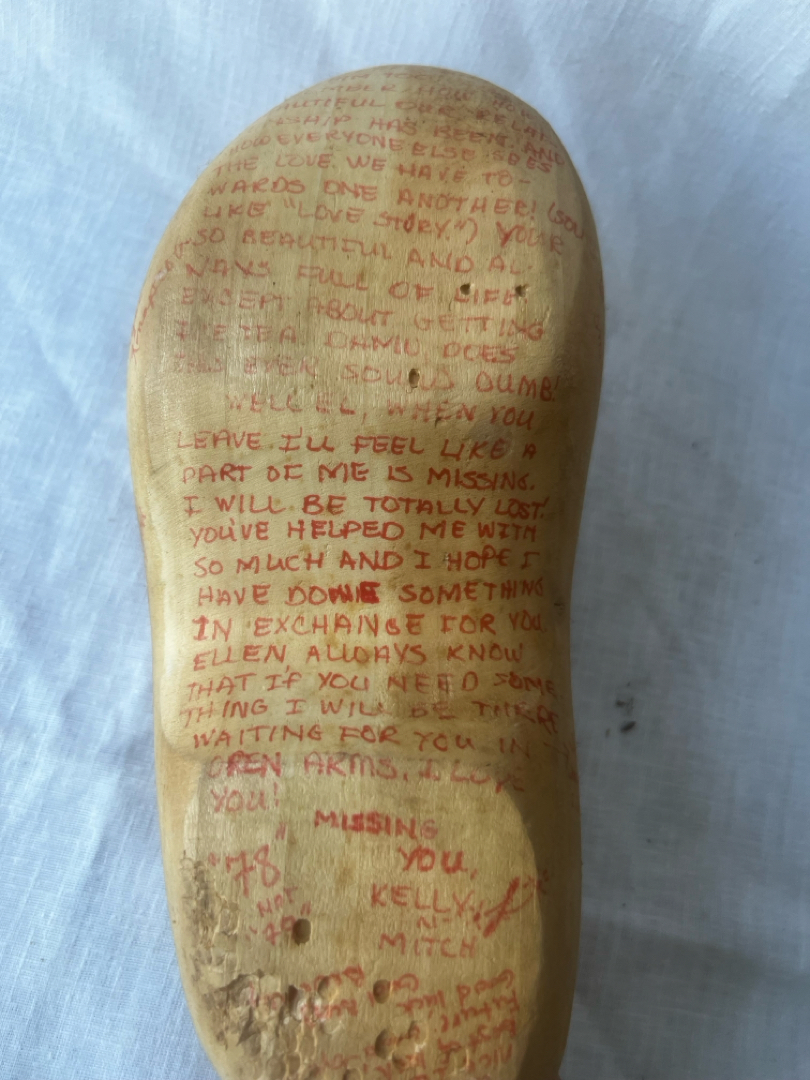 HOW OUR
BEAUTIFUL OUR RELAT
NSHIP HAS BEEN, AND
HOW EVERYONE ELSE SEES
THE LOVE WE HAVE TO-
WARDS ONE ANOTHER! (SOU
LIKE "LOVE STORY.") YOUR
SO BEAUTIFUL AND AL-
WAYS FULL OF LIFE
EXCEPT ABOUT GETTING
DAMN DOES
EVER SOUND DUMB!
WELL EL, WHEN YOU
LEAVE I'LL FEEL LIKE A
PART OF ME IS MISSING.
I WILL BE TOTALLY LOST!
YOU'VE HELPED ME WITH
SO MUCH AND I HOPE I
HAVE DONE SOMETHING
IN EXCHANGE FOR YOU.
ELLEN, ALWAYS KNOW
THAT IF YOU NEED SOME
THING I WILL BE THERE
WAITING FOR YOU IN
OPEN ARMS. I LOVE
YOU!
MISSING
"78" YOU,
NOT KELLY
"79" N
MITCH
Good luck
Future